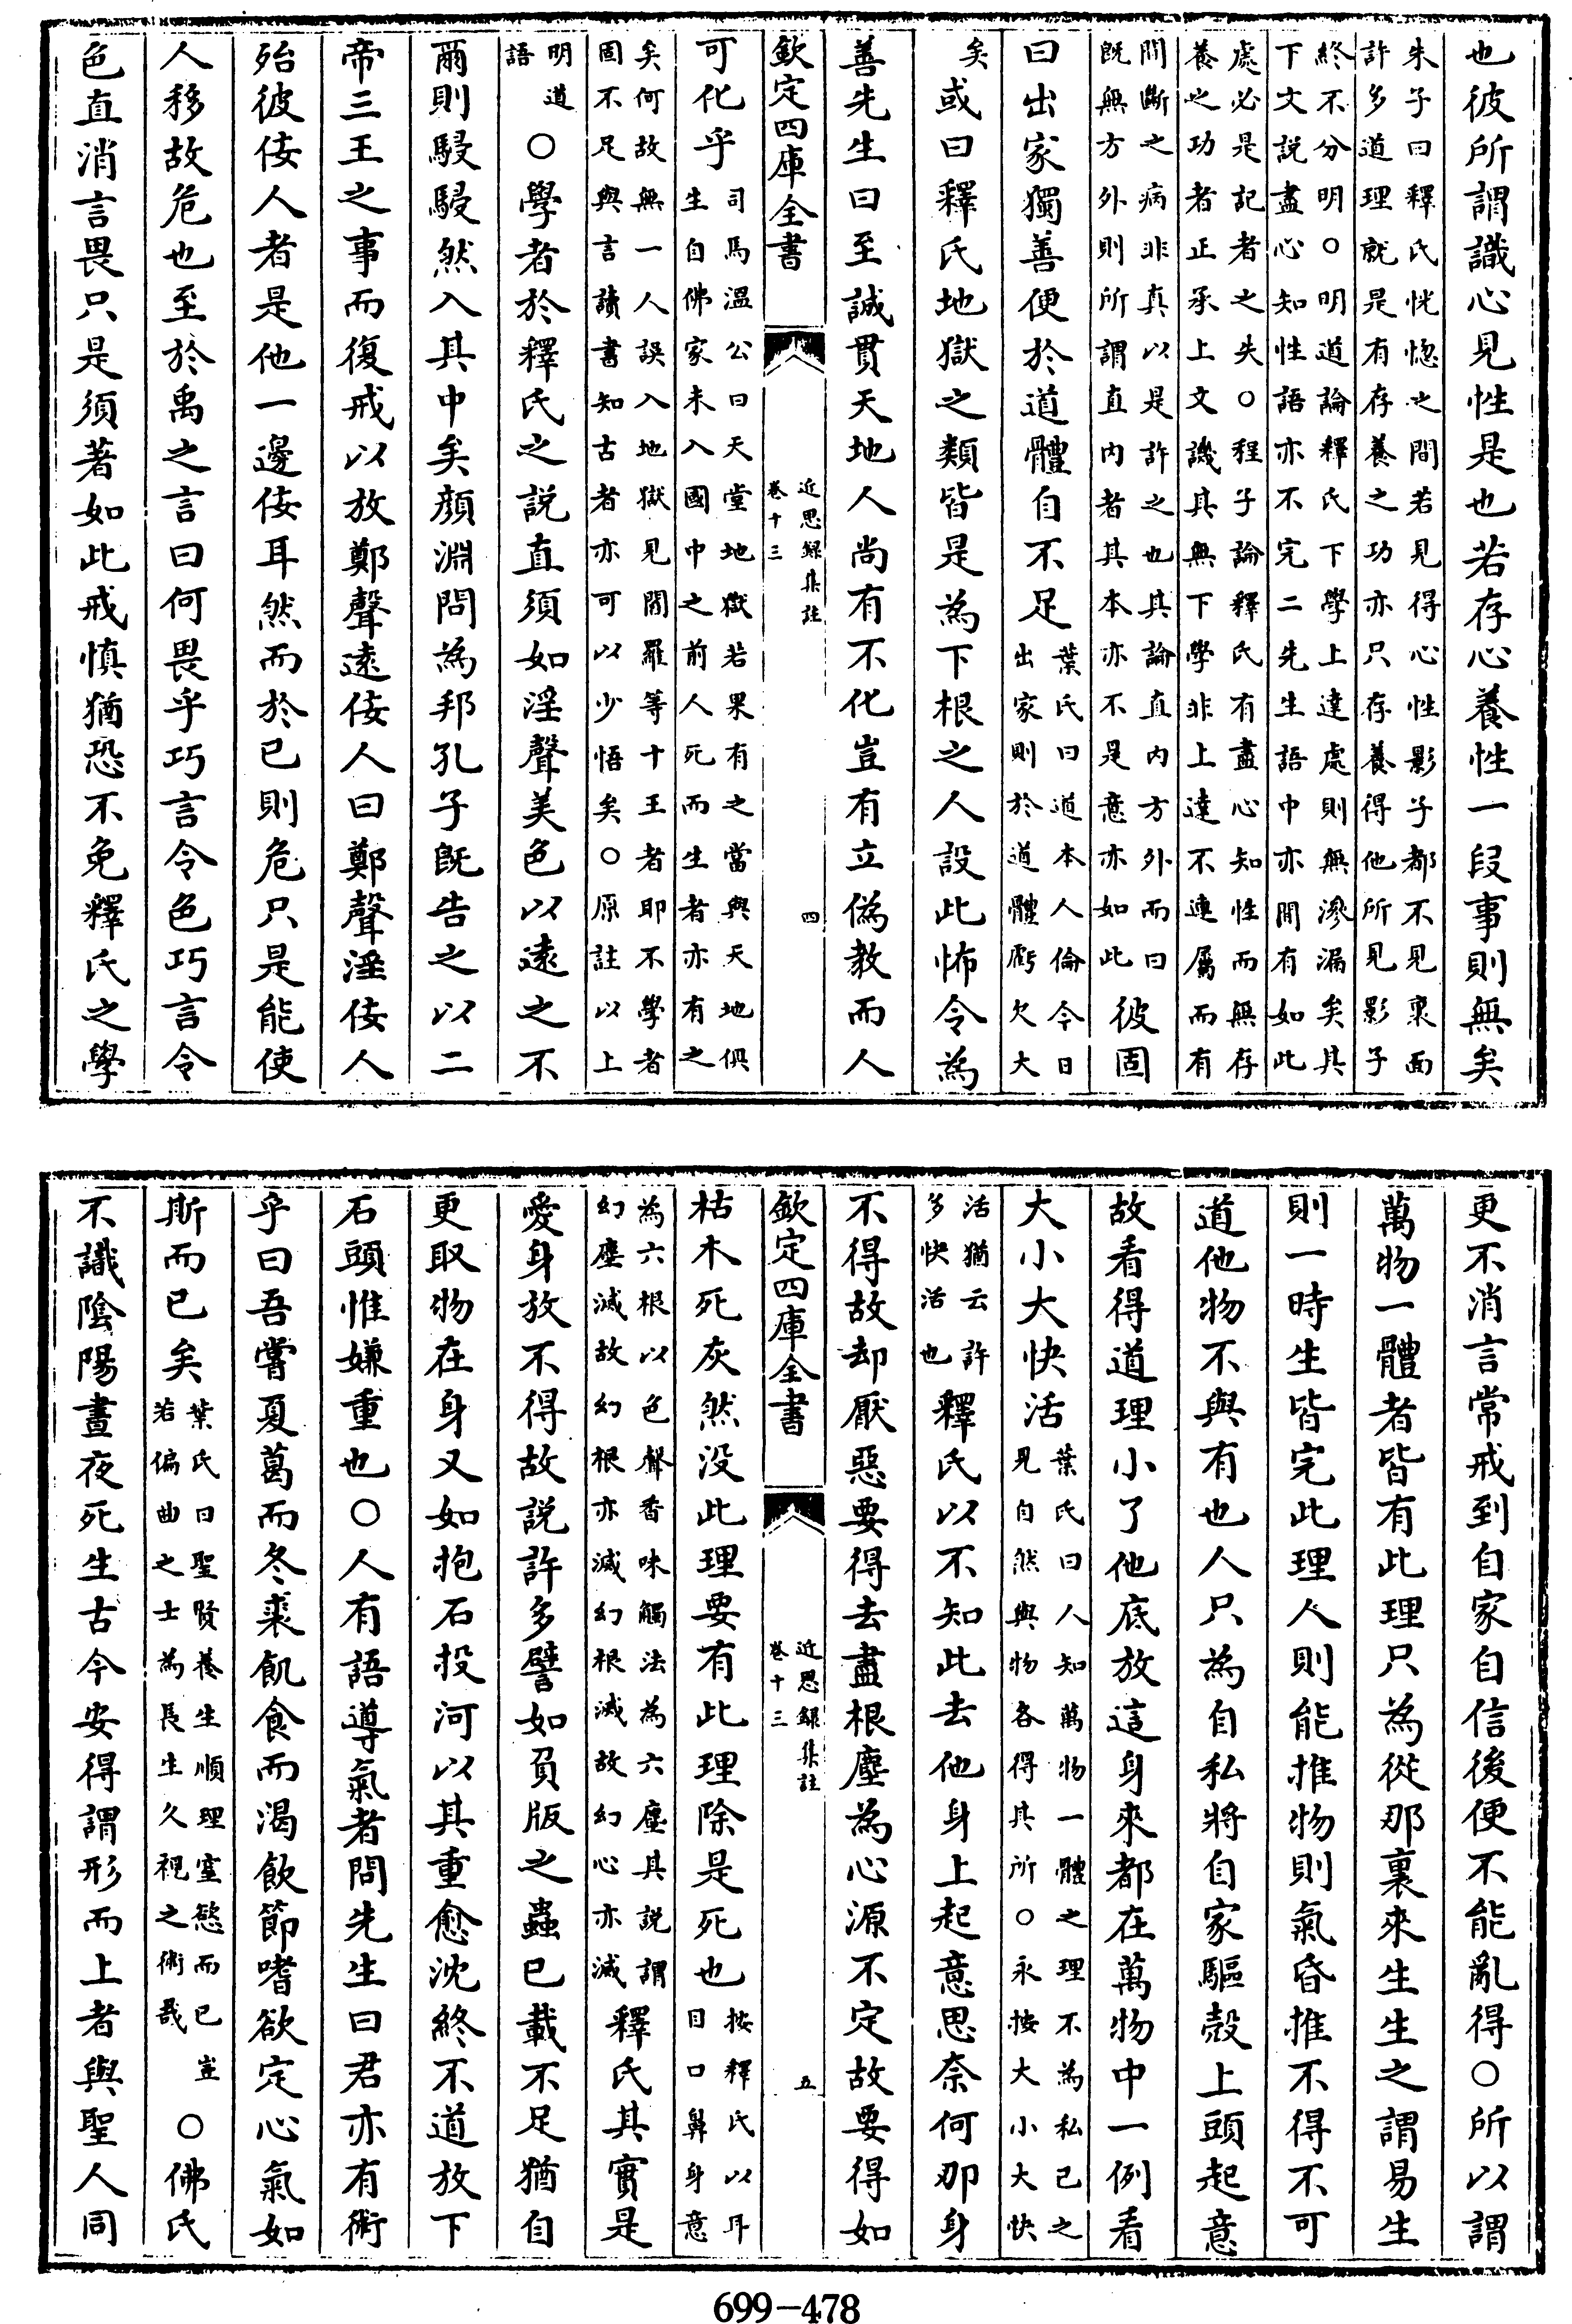 也彼所謂識心見性是也若存心養性一段事則無矣
朱子曰釋氏恍惚之間若見得心性影子都不見裏面
許多道理就是有存養之功亦只存養得他所見影子
終不分明○明道論釋氏下學上達處則無滲漏矣其
下文説盡心知性語亦不完二先生語中亦間有如此
處必是記者之失○程子論釋氏有盡心知性而無存
養之功者正承上文譏其無下學非上達不連屬而有
間斷之病非真以是許之也其論直内方外而曰
既無方外則所謂直内者其本亦不是意亦如此
彼固
曰出家獨善便於道體自不足
葉氏曰道本人倫今日
出家則於道體虧欠大
矣
或曰釋氏地獄之類皆是為下根之人設此怖令為
善先生曰至誠貫天地人尚有不化豈有立偽教而人
欽定四庫全書
近思録集註
卷十三
四
可化乎
司馬温公曰天堂地獄若果有之當與天地俱
生自佛家未入國中之前人死而生者亦有之
矣何故無一人誤入地獄見閻羅等十王者耶不學者
固不足與言讀書知古者亦可以少悟矣○原註以上
明道
語
○學者於釋氏之説直須如淫聲美色以遠之不
爾則駸駸然入其中矣顔淵問為邦孔子既告之以二
帝三王之事而復戒以放鄭聲遠佞人曰鄭聲淫佞人
殆彼佞人者是他一邊佞耳然而於已則危只是能使
人移故危也至於禹之言曰何畏乎巧言令色巧言令
色直消言畏只是須著如此戒慎猶恐不免釋氏之學
更不消言常戒到自家自信後便不能亂得○所以謂
萬物一體者皆有此理只為從那裏來生生之謂易生
則一時生皆完此理人則能推物則氣昏推不得不可
道他物不與有也人只為自私將自家驅殼上頭起意
故看得道理小了他底放這身來都在萬物中一例看
大小大快活
葉氏曰人知萬物一體之理不為私己之
見自然與物各得其所○永按大小大快
活猶云許
多快活也
釋氏以不知此去他身上起意思奈何那身
不得故却厭惡要得去盡根塵為心源不定故要得如
欽定四庫全書
近思録集註
卷十三
五
枯木死灰然没此理要有此理除是死也
按釋氏以耳
目口鼻身意
為六根以色聲香味觸法為六塵其説謂
幻塵滅故幻根亦滅幻根滅故幻心亦滅
釋氏其實是
愛身放不得故説許多譬如負版之蟲已載不足猶自
更取物在身又如抱石投河以其重愈沈終不道放下
石頭惟嫌重也○人有語導氣者問先生曰君亦有術
乎曰吾嘗夏葛而冬裘飢食而渴飲節嗜欲定心氣如
斯而已矣
葉氏曰聖賢養生順理窒慾而已豈
若偏曲之士為長生久視之術哉
○佛氏
不識陰陽晝夜死生古今安得謂形而上者與聖人同
699-478